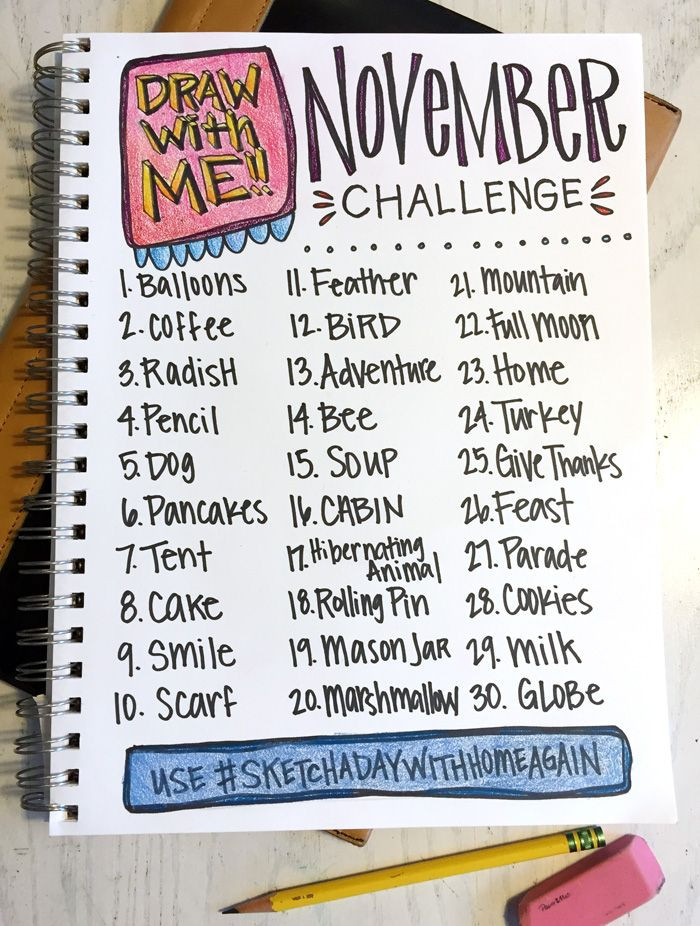 DRAW
With
ME!!
NOVEMBER
CHALLENGE
1. Balloons
2. Coffee
3. Radish
4. Pencil
5. Dog
6. Pancakes
7. Tent
8. Cake
9. Smile
10. Scarf
11. Feather
12. BiRD
13. Adventure
14. Bee
15. SOUP
16. CABIN
17. Hibernating
Animal
18. Rolling Pin
19. Mason Jar
20. Marshmallow
21. Mountain
22. Full Moon
23. Home
24. Turkey
25. Give Thanks
26. Feast
27. Parade
28. Cookies
29. Milk
30. GLOBe
USE #SKETCHADAYWITHHOMEAGAIN